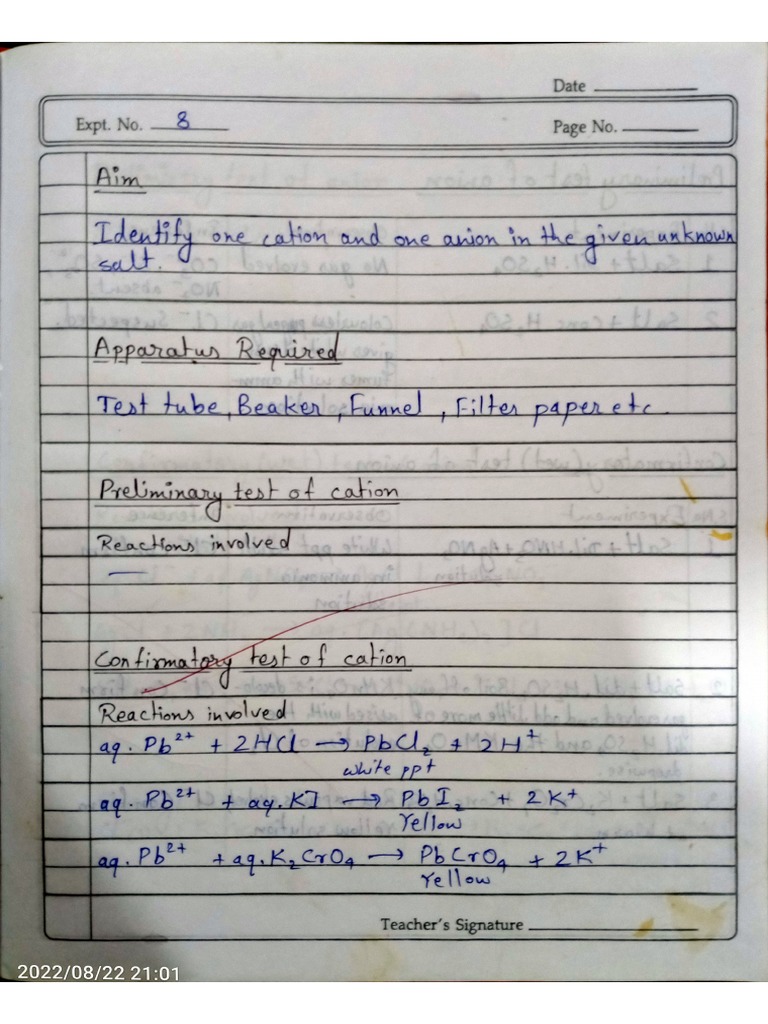 Date
Expt. No. 8
Page No.
Aim
Identify one cation and one anion in the given unknown
salt.
Apparatus Required
Test tube, Beaker, Funnel, Filter paper etc.
Preliminary test of cation
Reactions involved
—
Confirmatory test of cation
Reactions involved
aq. Pb²⁺ + 2HCl → PbCl₂ + 2H⁺
white ppt
aq. Pb²⁺ + aq. KI → PbI₂ + 2K⁺
Yellow
aq. Pb²⁺ + aq. K₂CrO₄ → PbCrO₄ + 2K⁺
Yellow
Teacher's Signature
2022/08/22 21:01